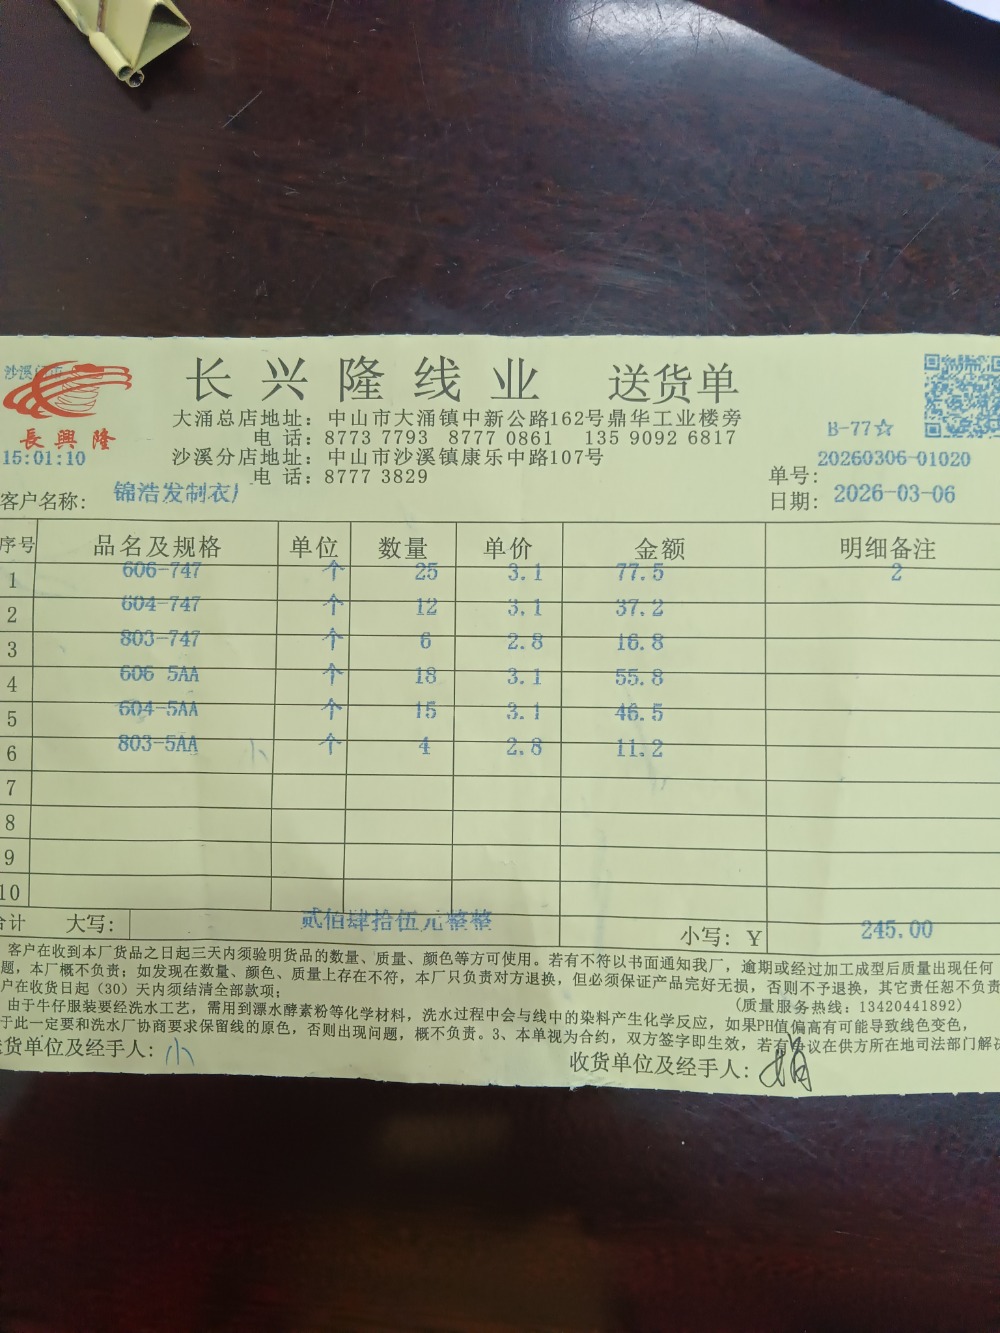 长兴隆线业 送货单
長興隆
大涌总店地址：中山市大涌镇中新公路162号鼎华工业楼旁
电 话：8773 7793 8777 0861 135 9092 6817
B-77☆
15:01:10
沙溪分店地址：中山市沙溪镇康乐中路107号
电 话：8777 3829
单号：20260306-01020
客户名称：锦浩发制衣厂
日期：2026-03-06
序号 品名及规格 单位 数量 单价 金额 明细备注
1 606-747 个 25 3.1 77.5 2
2 604-747 个 12 3.1 37.2
3 803-747 个 6 2.8 16.8
4 606 5AA 个 18 3.1 55.8
5 604-5AA 个 15 3.1 46.5
6 803-5AA 个 4 2.8 11.2
7
8
9
10
合计 大写：贰佰肆拾伍元整整 小写：Y 245.00
客户在收到本厂货品之日起三天内须验明货品的数量、质量、颜色等方可使用。若有不符以书面通知我厂，逾期或经过加工成型后质量出现任何
题，本厂概不负责；如发现在数量、颜色、质量上存在不符，本厂只负责对方退换，但必须保证产品完好无损，否则不予退换，其它责任恕不负责
户在收货日起（30）天内须结清全部款项；
(质量服务热线：13420441892)
由于牛仔服装要经洗水工艺，需用到漂水酵素粉等化学材料，洗水过程中会与线中的染料产生化学反应，如果PH值偏高有可能导致线色变色，
于此一定要和洗水厂协商要求保留线的原色，否则出现问题，概不负责。3、本单视为合约，双方签字即生效，若有争议在供方所在地司法部门解决
送货单位及经手人：小
收货单位及经手人：